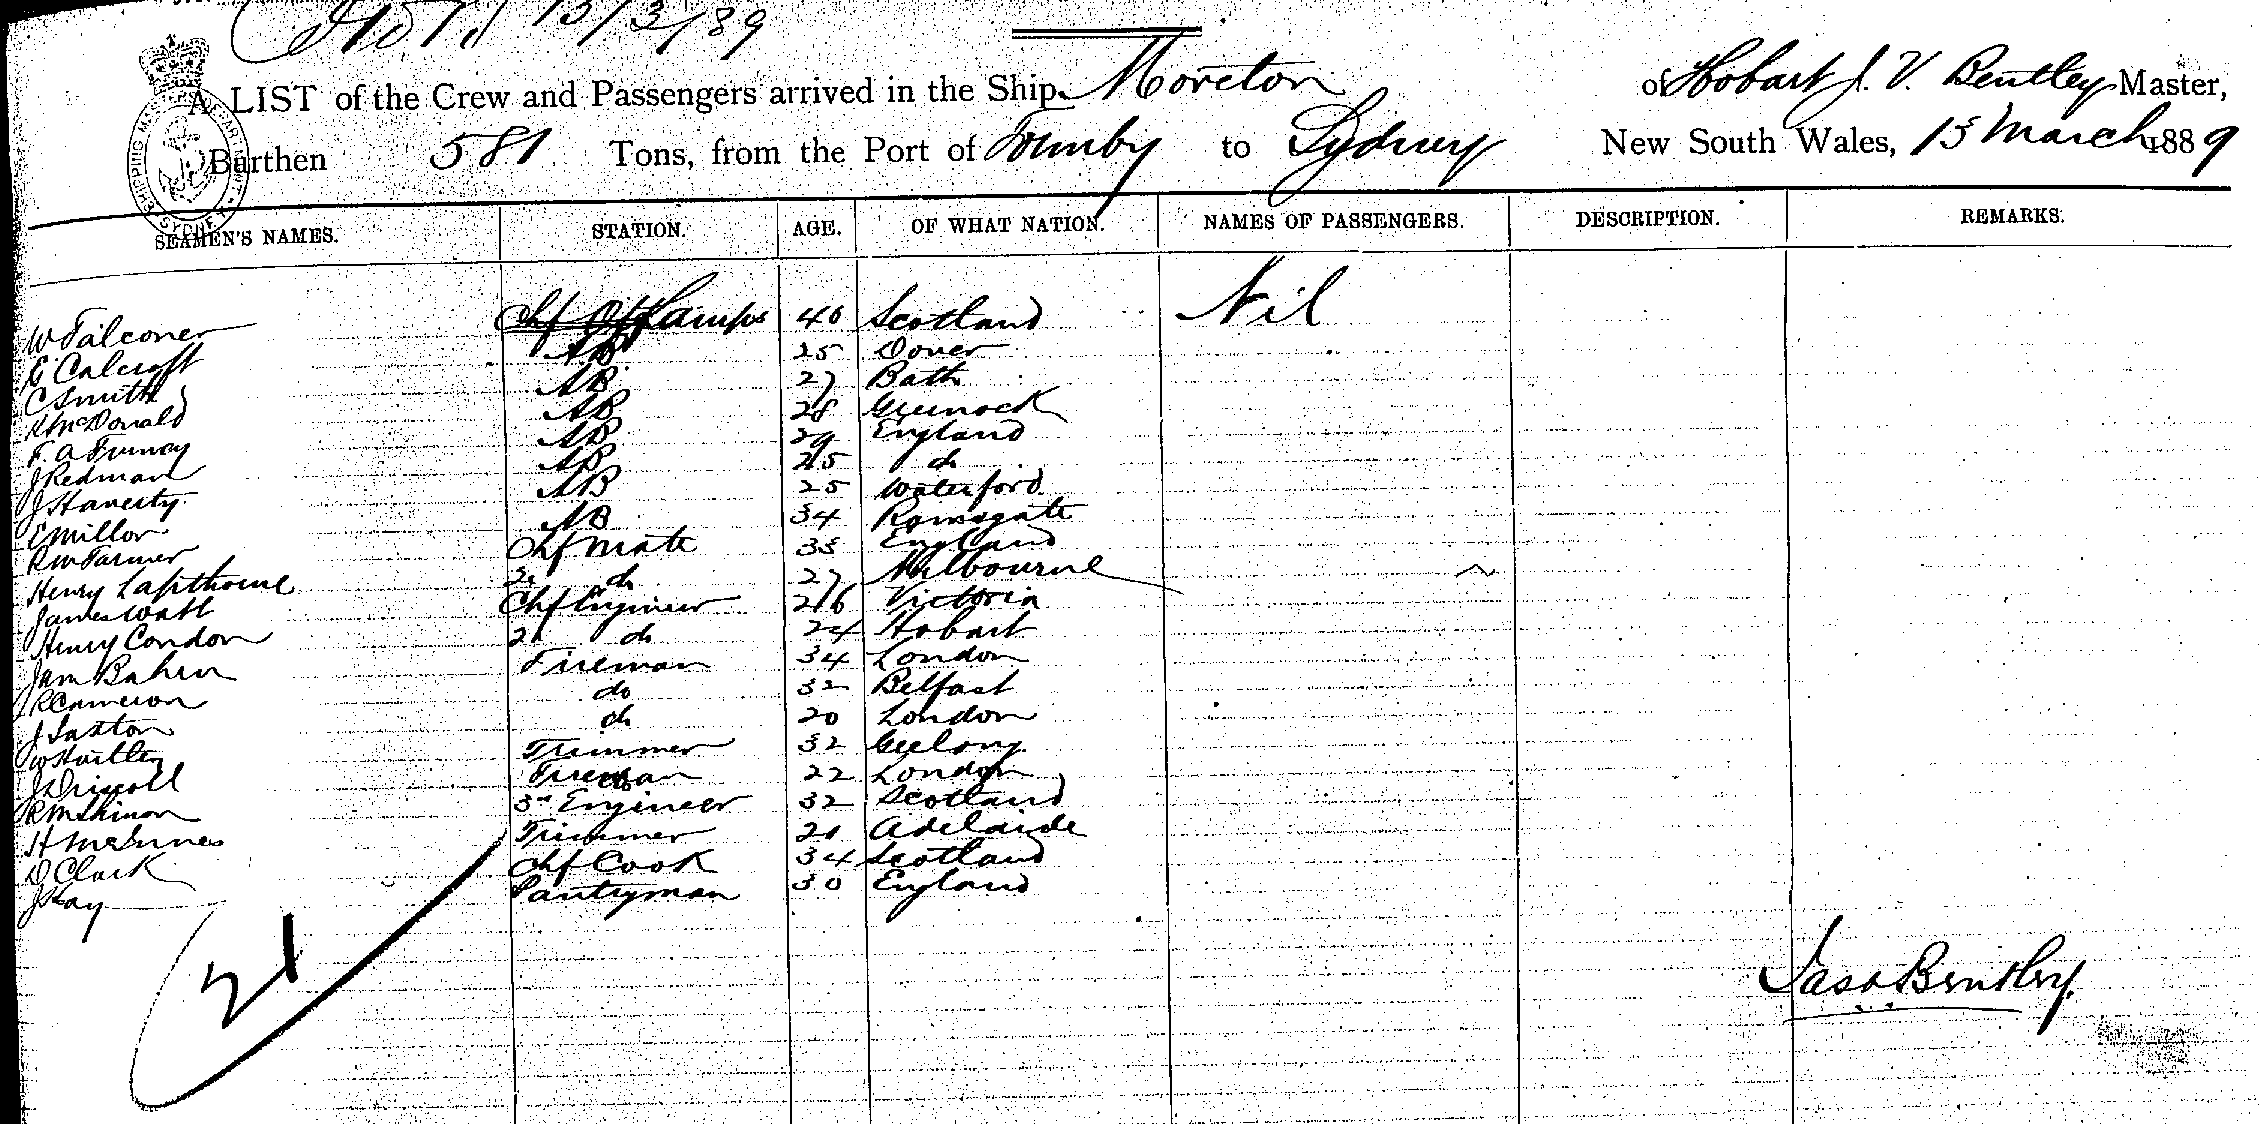 13/3/89
A LIST of the Crew and Passengers arrived in the Ship Moreton of Hobart J. V. Bentley Master,
Burthen 581 Tons, from the Port of to Sydney New South Wales, 13 March 1889
SHIPPING MASTER'S SYDNEY
SEAMEN'S NAMES. STATION. AGE. OF WHAT NATION. NAMES OF PASSENGERS. DESCRIPTION. REMARKS.
W Falconer Lamps 40 Scotland Nil
E Calcroft AB 25 Dover
C Smith AB 27 Bath
McDonald AB 28 Greenock
F. A AB 29 England
J Redman AB 25 do
J Haverty AB 25 Waterford
E Millor AB 34 Ramsgate
R W Farmer Chf Mate 35 England
Henry Lapthorne 2n do 27 Melbourne
James Watt Chf Engineer 26 Victoria
Henry Condon 2n do 24 Hobart
Jam Fireman 34 London
R Cameron do 32 Belfast
J Saxton do 20 London
W Hartley Trimmer 32 Geelong
J Driscoll Fireman 22 London
R 3rd Engineer 32 Scotland
H McInnes Trimmer 20 Adelaide
D Clark Chf Cook 34 Scotland
J Kay Pantryman 30 England
21
Bentley